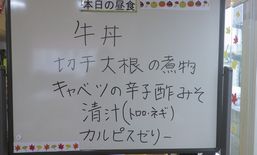 本日の昼食
牛丼
切干大根の煮物
キャベツの辛子酢みそ
清汁(トロロ・ネギ)
カルピスゼリー